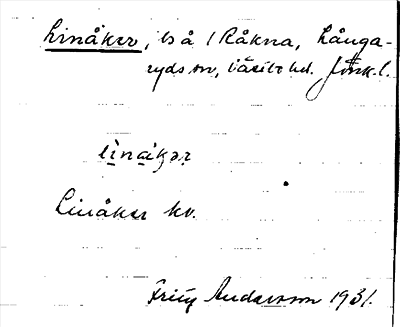 Linåker, bå i Råkna, Långa-
ryds sn, Västbo hd. Jönk. l.
linakər
Linåker kv.
Andersson 1931.